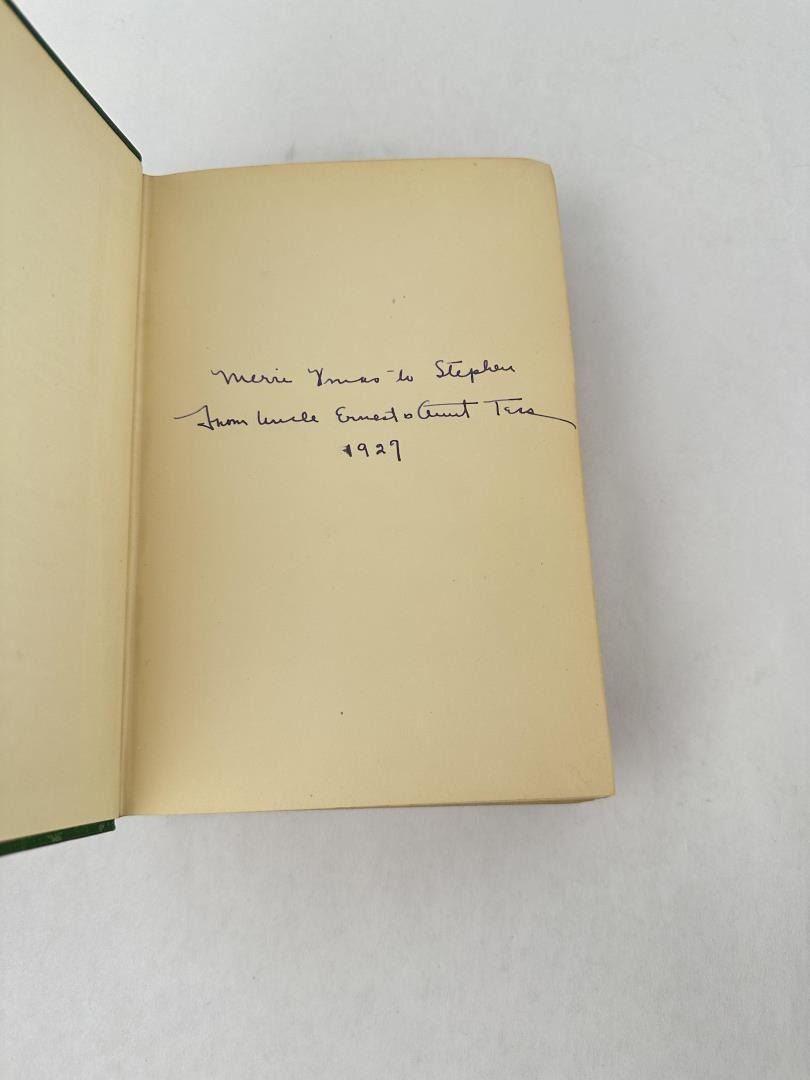 Merrie Xmas to Stephen
From Uncle Ernest & Aunt Tess
1927